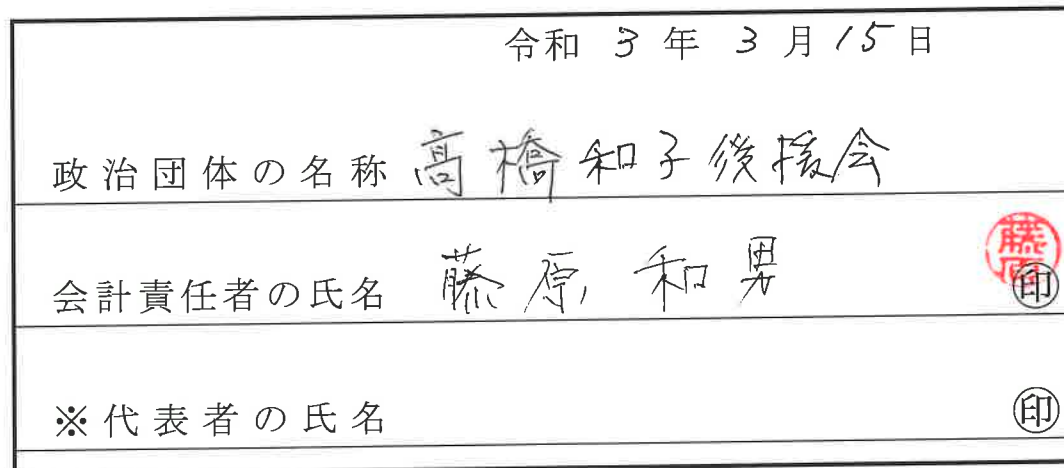 令和 3 年 3 月 15 日
政治団体の名称 高橋和子後援会
会計責任者の氏名 藤原 和男 藤原 ㊞
※代表者の氏名 ㊞